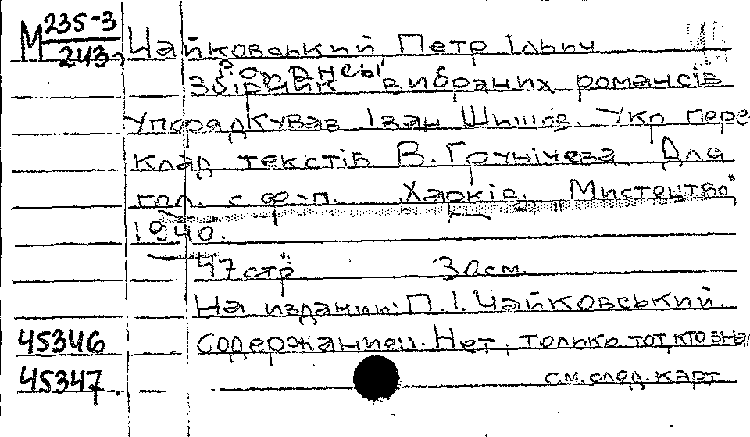 М 235-3
243
Чайковський Петр Ілвич
Романсы
Збірник вибраних романсів
Упорядкував Іван Шишов. Укр пере
клад текстів В. Грунічева Для
гол. с ф-п. Харків, "Мистецтво",
1940.
47 стр 30 см.
На издании: П. І. Чайковський
45346 Содержание: 1. Нет, только тот, кто зна
45347 см. след. карт